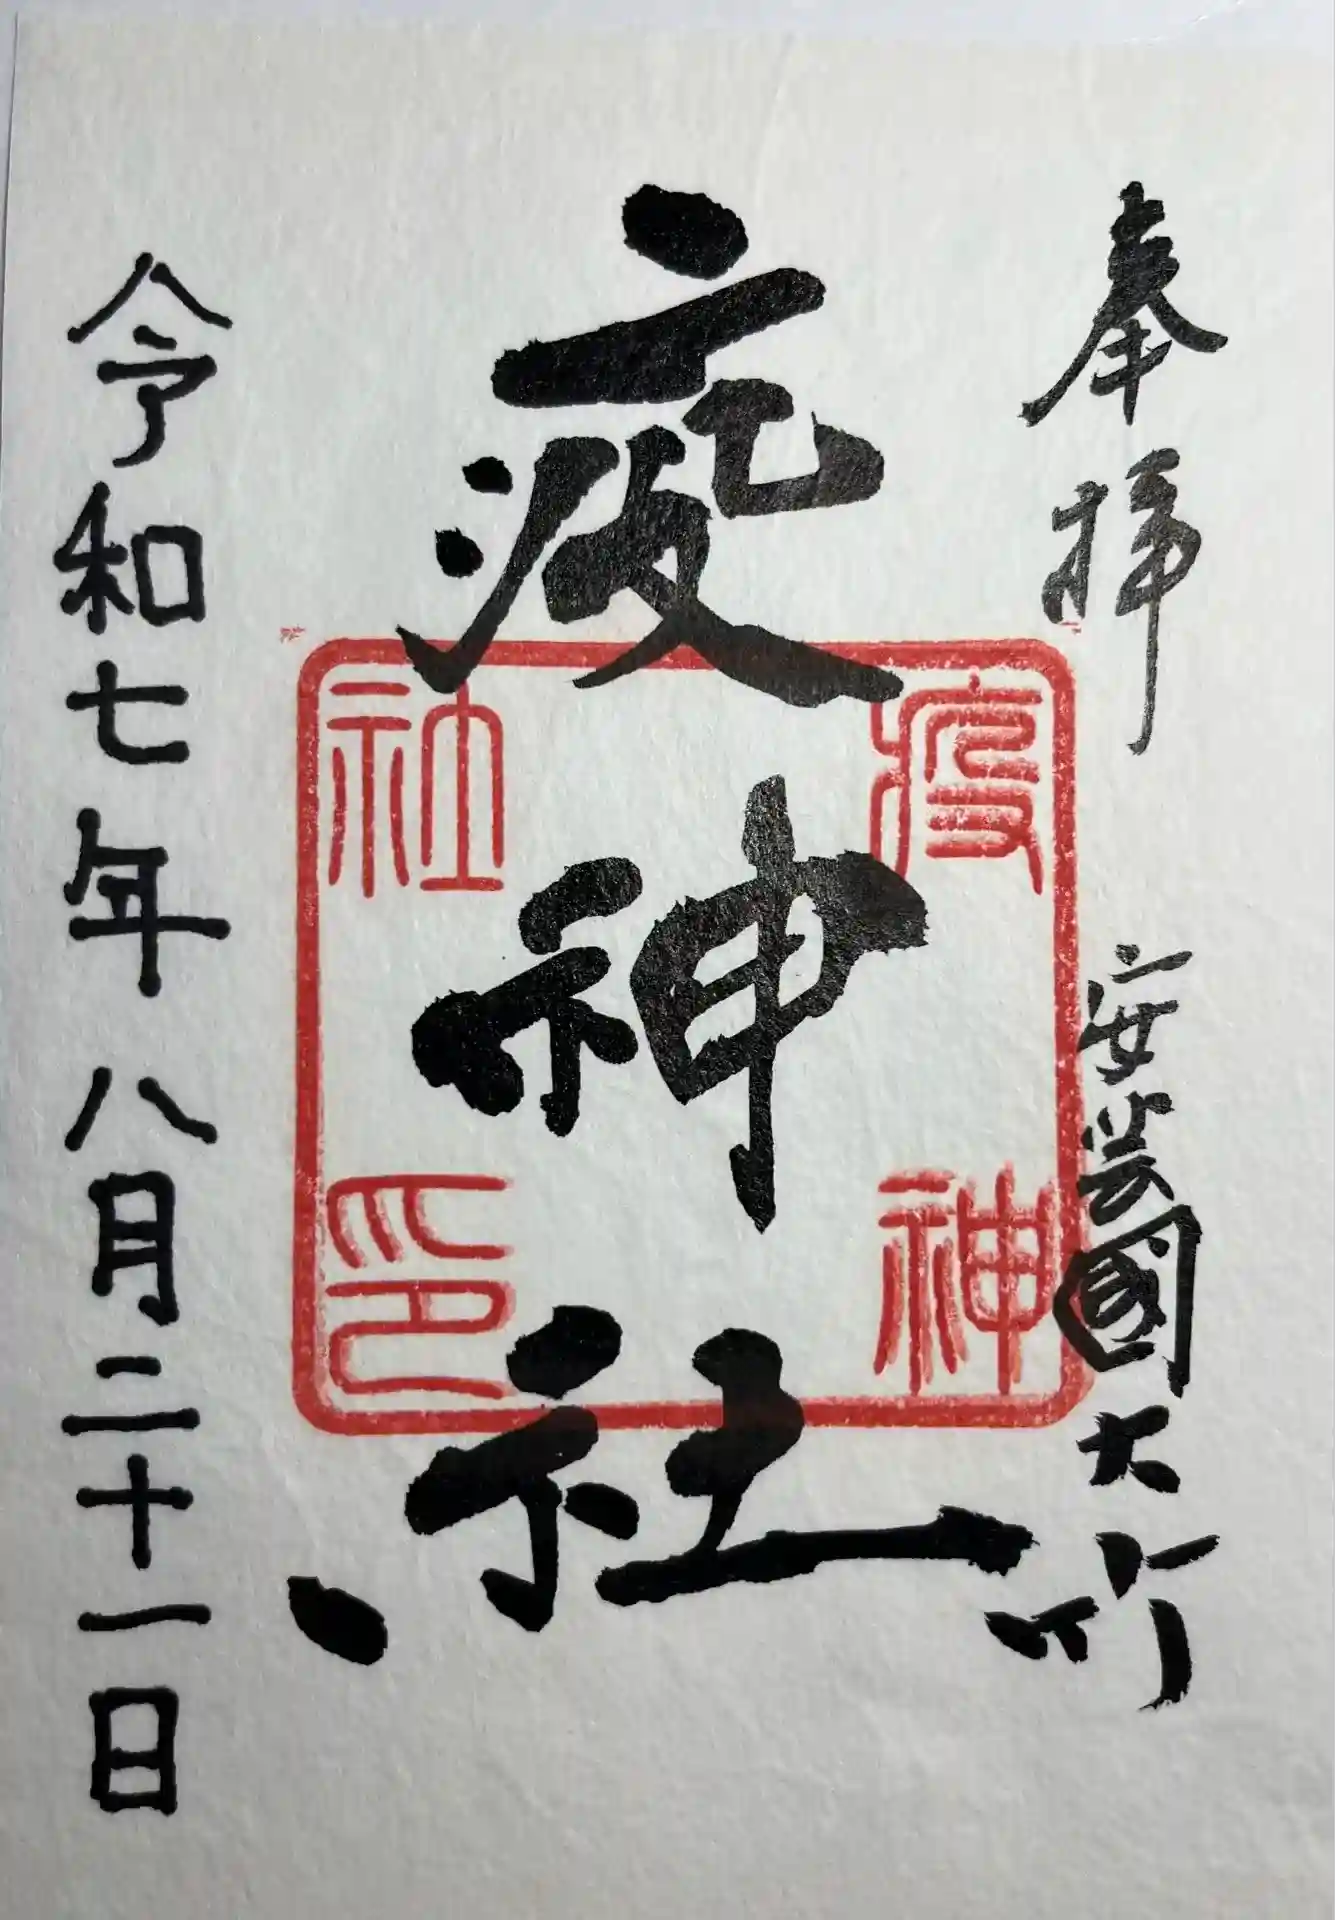 奉拝 安芸國大竹
疫神社
疫神
社印
令和七年八月二十一日